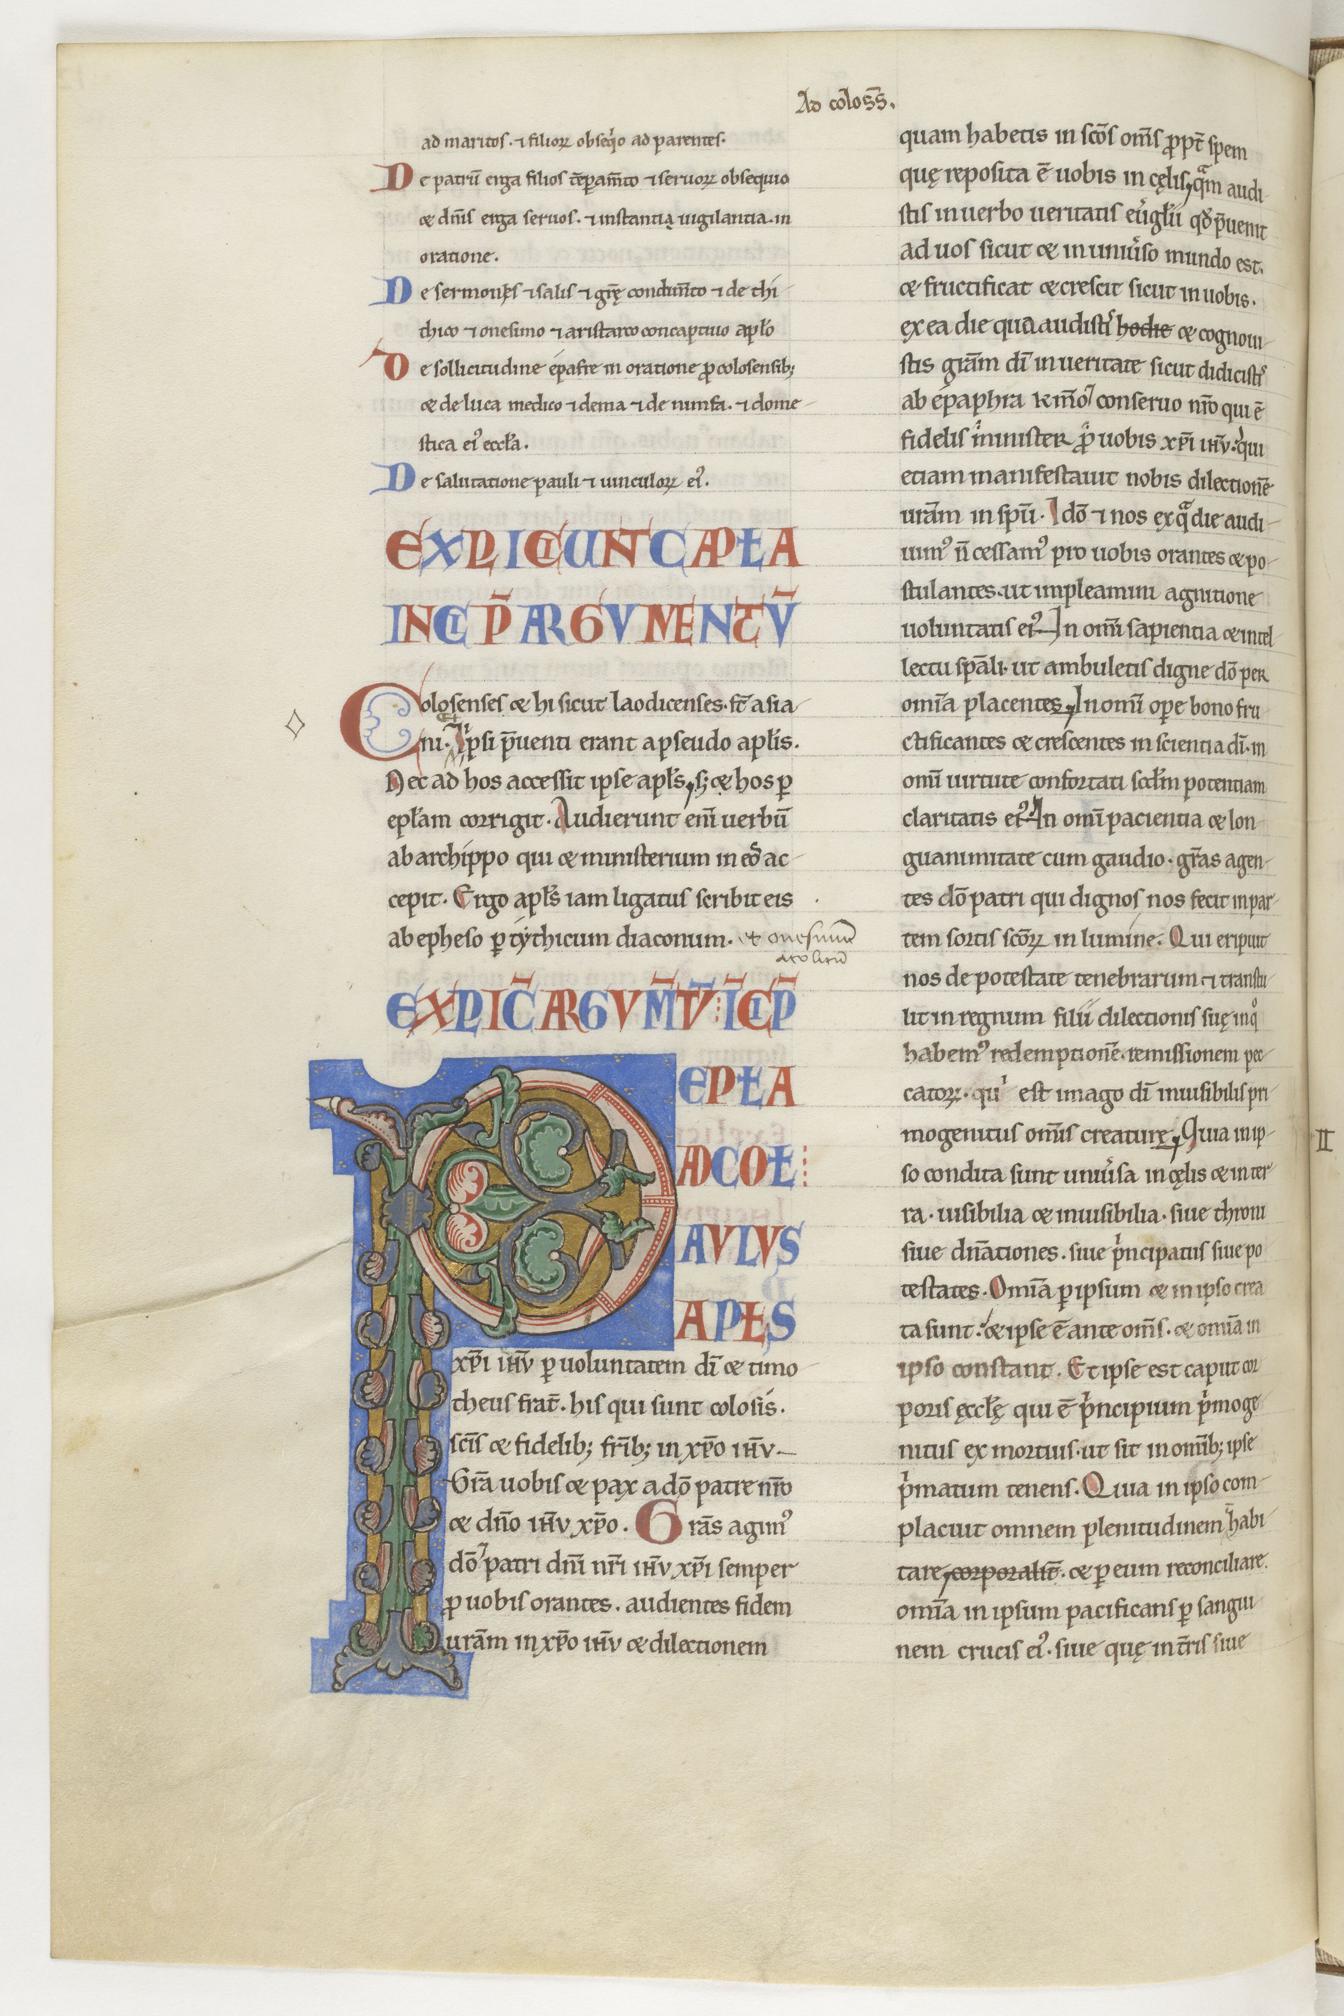 Ad colos̅s̅.
ad maritos. ⁊ filioꝝ obseq̍o ad parentes.
De patrū erga filios tēꝑam̅to ⁊ seruoꝝ obsequio
& dn̅is erga seruos. ⁊ instantia uigilantia. in
oratione.
De sermonis ⁊ salis ⁊ gr̅ę condim̅to ⁊ de thi
thico ⁊ onesimo ⁊ aristarco concaptiuo aplo̅
De sollicitudine épafre in oratione ꝓ colosensib;
& de luca medico ⁊ dema ⁊ de nimfa. ⁊ dome
stica ei᾽ eccl̅a.
De salutatione pauli ⁊ uinculoꝝ ei᾽.
EXPLICIUNT CAPŁA
INCIP̅ ARGVMENTV̅
Colosenses & hi sicut laodicenses. st̅ asia
ni. Et ipsi p̅uenti erant a pseudo apl̅is.
Nec ad hos accessit ipse apl̅s, s; & hos ꝑ
epl̅am corrigit. Audierunt eni̅ uerbū
ab archippo qui & ministerium in eo̅ ac
cepit. Ergo apl̅s iam ligatus scribit eis
ab epheso ꝑ tythicum diaconum. et onesimū
acolitū
EXPLIC̅ ARGVM̅TV̅: I̅CIP̅
EPŁA
AD COŁ
PAVLVS
APŁS
xp̅i ih̅v ꝑ uoluntatem di̅ & timo
theus frat̅. his qui sunt colosis.
sc̅is & fidelib; fr̅ib; in xp̅o ih̅v
Gr̅a uobis & pax a do̅ patre nr̅o
& dn̅o ih̅v xp̅o. Gra̅s agim᾽
do̅ ⁊ patri dn̅i nr̅i ih̅v xp̅i semper
ꝓ uobis orantes. audientes fidem
ur̅am in xp̅o ih̅v & dilectionem
quam habetis in sc̅os om̅s ꝓpt̅ spem
quę reposita ē uobis in cęlis, qᵃm audi
stis in uerbo ueritatis eu̅gl̅ii qd̅ p̅uenit
ad uos sicut & in uniu̍so mundo est.
& fructificat & crescit sicut in uobis.
ex ea die qua audistis hodie & cognoui
stis gr̅am di̅ in ueritate sicut didicistis
ab épaphra kmo̅ conseruo nr̅o qui ē
fidelis minister ꝓ uobis xp̅i ih̅v. qui
etiam manifestauit nobis dilectionē
ur̅am in sp̅u. Ido̅ ⁊ nos ex qᵃ die audi
uim᾽ n̅ cessam᾽ pro uobis orantes & po
stulantes. ut impleamini agnitione
uoluntatis ei᾽. In omi̅ sapientia & intel
lectu sp̅ali. ut ambuletis digne do̅ per
omi̅a placentes, In omi̅ ope bono fru
ctificantes & crescentes in scientia di̅. in
omi̅ uirtute confortati scdm̅ potentiam
claritatis ei᾽. In omi̅ pacientia & lon
guanimitate cum gaudio. gr̅as agen
tes do̅ patri qui dignos nos fecit in par
tem sortis sc̅oꝝ in lumine. Qui eripuit
nos de potestate tenebrarum ⁊ transtu
lit in regnum filii dilectionis suę inqͦ
habem᾽ redemptionē. remissionem pec
catoꝝ. qui est imago di̅ inuisibilis pri
mogenitus omi̅s creaturę, Quia in ip
so condita sunt uniu̍sa in cęlis & in ter
ra. uisibilia & inuisibilia. siue throni
siue dn̅ationes. siue p̍ncipatus siue po
testates. Omi̅a ꝑ ipsum & in ipso crea
ta sunt. & ipse ē ante om̅s. & omi̅a in
ipso constant. Et ipse est caput cor
poris ęccl̅ę qui ē p̍ncipium p̍moge
nitus ex mortuis. ut sit in omi̅b; ipse
p̍matum tenens. Quia in ipso com
placuit omnem plenitudinem habi
tare, corporalit̅. & ꝑ eum reconciliare
omi̅a in ipsum pacificans ꝑ sangui
nem crucis ei᾽. siue quę in t̅ris siue
II